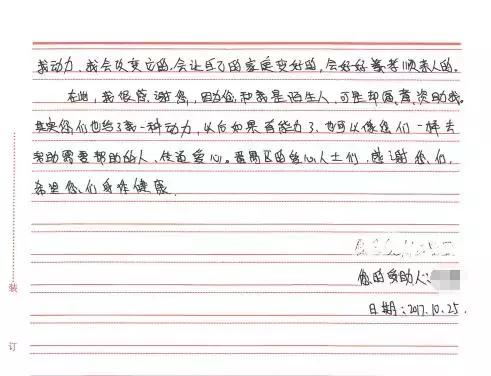 我动力、我会改变它的,会让自己的家庭变好的,会好好善孝顺亲人的。
在此,我很感谢您,因为您和我是陌生人,可是却愿意资助我。
其实您们也给了我一种动力,以后如果有能力了,也可以像您们一样去
帮助需要帮助的人,传递爱心。番禺区的爱心人士们,感谢您们,
希望您们身体健康
您的受助人:
日期:2017.10.25.
装
订